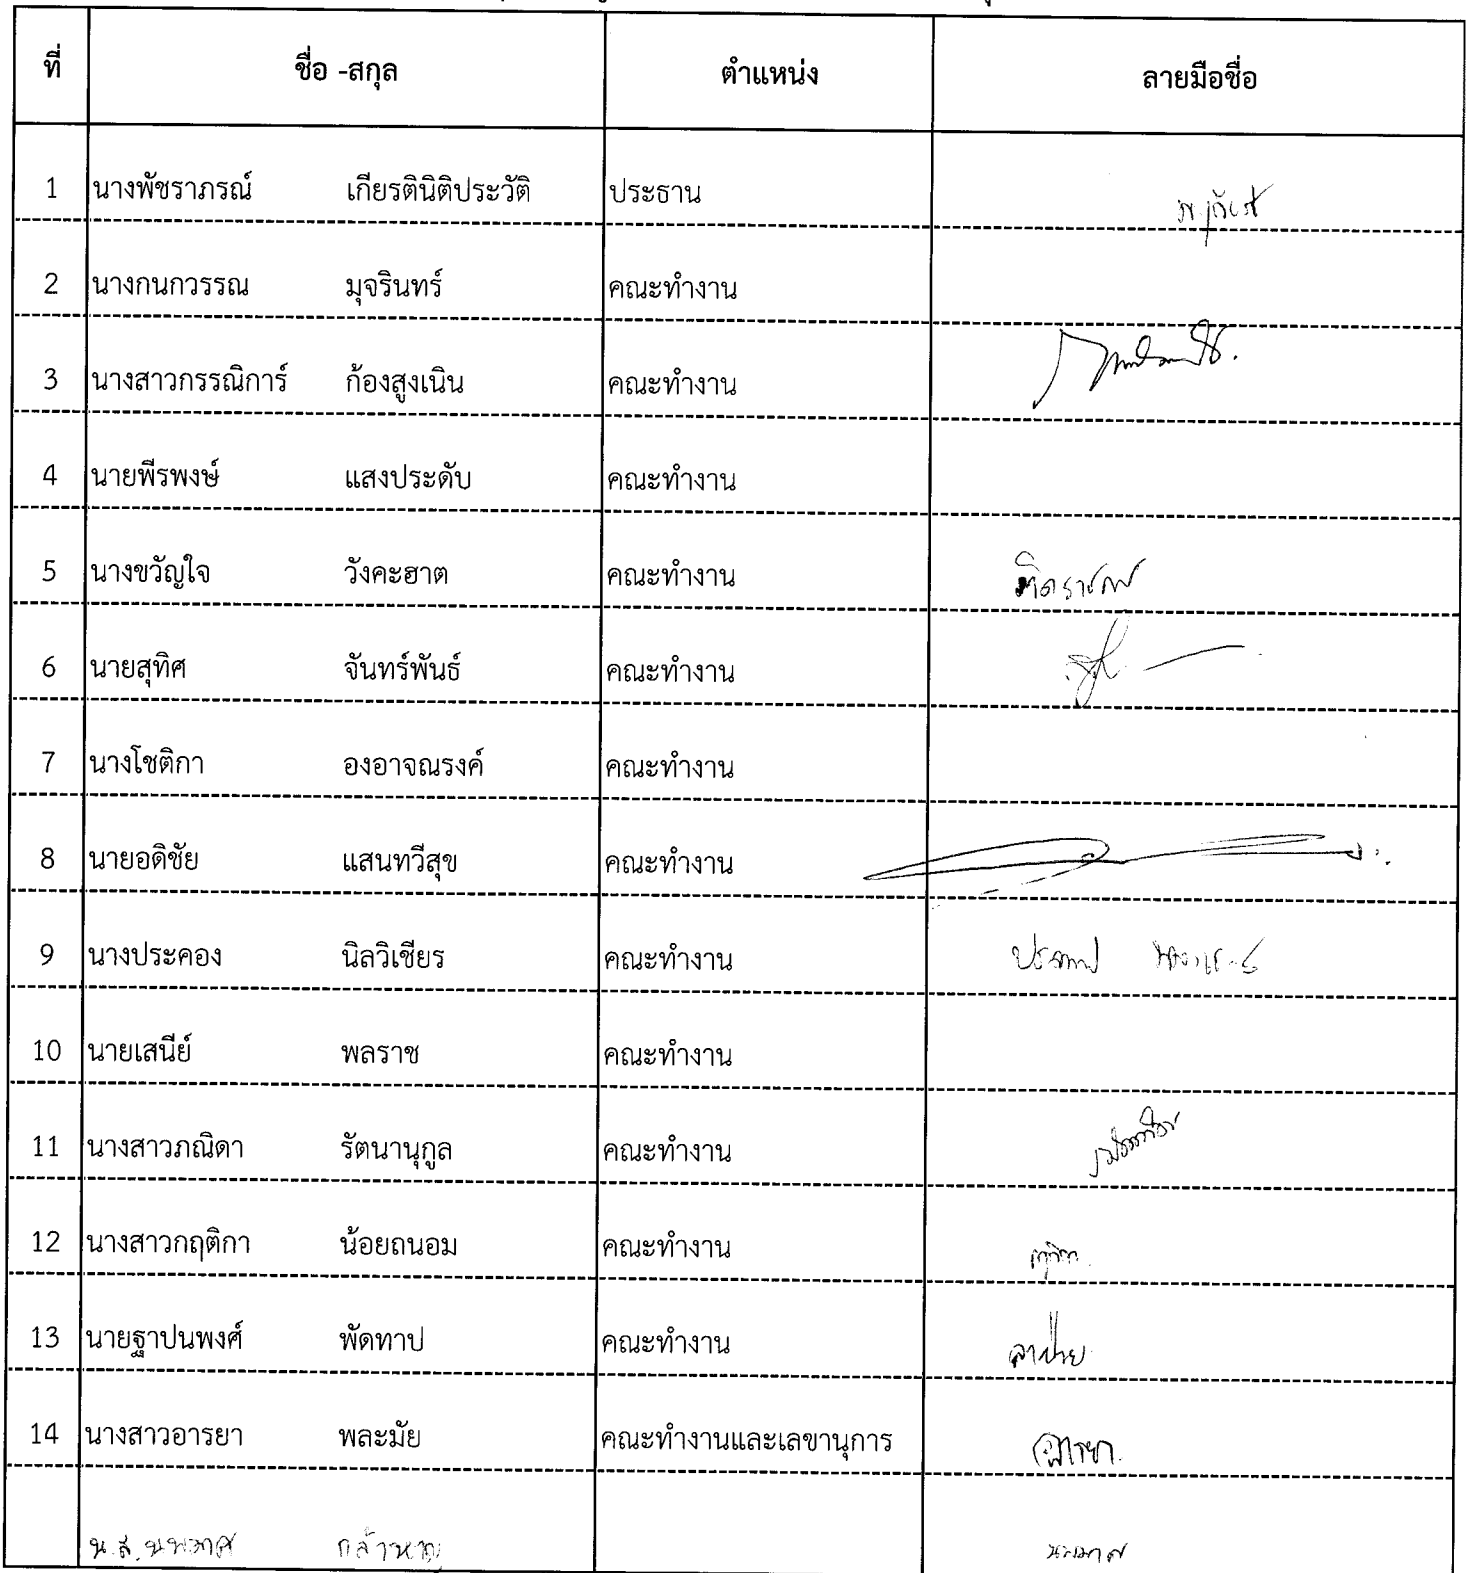 ที่ ชื่อ -สกุล ตำแหน่ง ลายมือชื่อ
1 นางพัชราภรณ์ เกียรตินิติประวัติ ประธาน
2 นางกนกวรรณ มุจรินทร์ คณะทำงาน
3 นางสาวกรรณิการ์ ก้องสูงเนิน คณะทำงาน
4 นายพีรพงษ์ แสงประดับ คณะทำงาน
5 นางขวัญใจ วังคะฮาต คณะทำงาน
6 นายสุทิศ จันทร์พันธ์ คณะทำงาน
7 นางโชติกา องอาจณรงค์ คณะทำงาน
8 นายอดิชัย แสนทวีสุข คณะทำงาน
9 นางประคอง นิลวิเชียร คณะทำงาน
10 นายเสนีย์ พลราช คณะทำงาน
11 นางสาวภณิดา รัตนานุกูล คณะทำงาน
12 นางสาวกฤติกา น้อยถนอม คณะทำงาน
13 นายฐาปนพงศ์ พัดทาป คณะทำงาน ลาป่วย
14 นางสาวอารยา พละมัย คณะทำงานและเลขานุการ อารยา
น.ส. นพมาศ กล้าหาญ นพมาศ